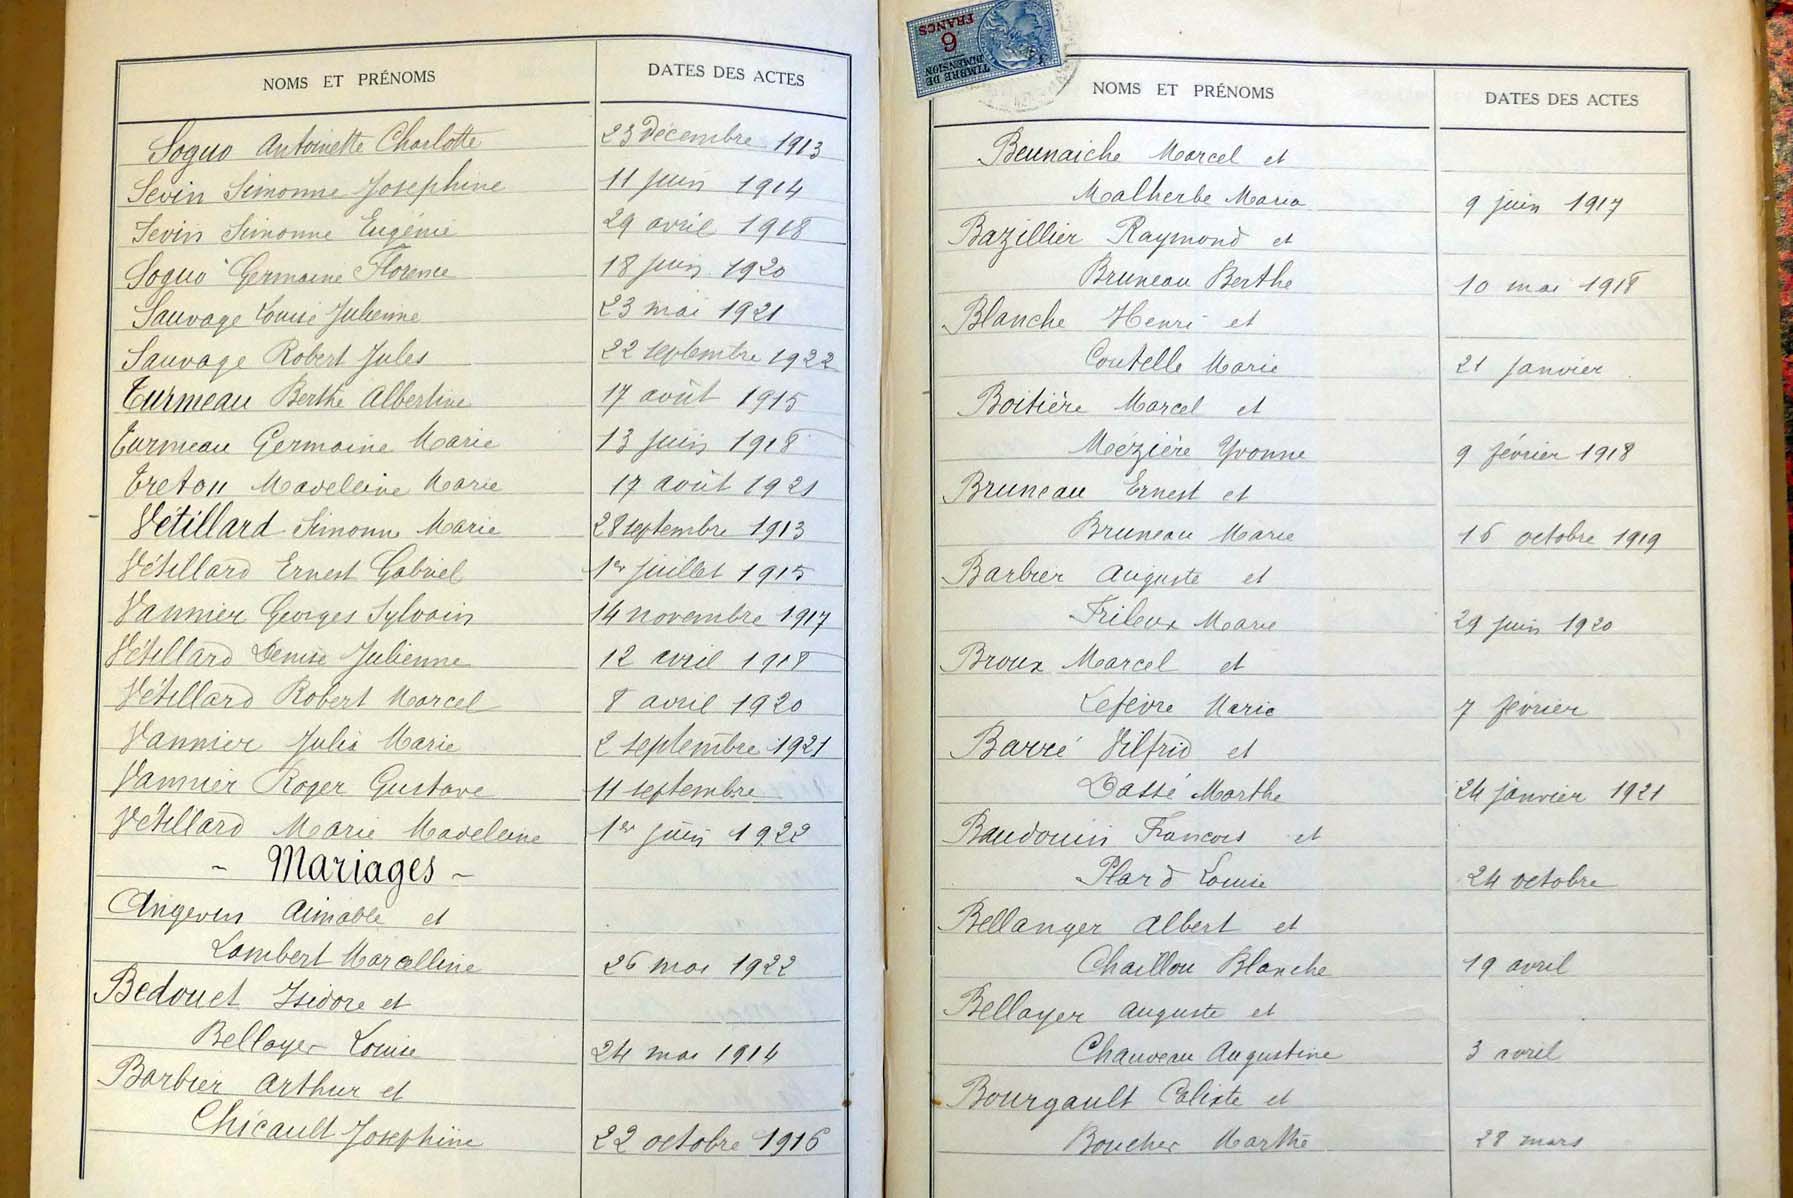 NOMS ET PRÉNOMS DATES DES ACTES
Soguo Antoinette Charlotte 23 Décembre 1913
Sevin Simonne Josephine 11 juin 1914
Sevin Simonne Eugénie 29 avril 1918
Soguo Germaine Florence 18 juin 1920
Sauvage Louise Julienne 23 mai 1921
Sauvage Robert Jules 22 septembre 1922
Turmeau Berthe Albertine 17 août 1915
Turmeau Germaine Marie 13 juin 1918
Treton Madeleine Marie 17 août 1921
Vétillard Simonne Marie 28 septembre 1913
Vétillard Ernest Gabriel 1er juillet 1915
Vannier Georges Sylvain 14 novembre 1917
Vétillard Denise Julienne 12 avril 1918
Vétillard Robert Marcel 8 avril 1920
Vannier Julia Marie 2 septembre 1921
Vannier Roger Gustave 11 septembre
Vétillard Marie Madeleine 1er juin 1922
- Mariages -
Angevin Aimable et
Lambert Marcelline 26 mai 1922
Bedouet Isidore et
Bellayer Louise 24 mai 1914
Barbier Arthur et
Chicault Josephine 22 octobre 1916
TIMBRE DE
DIMENSION
6
FRANCS
NOMS ET PRÉNOMS DATES DES ACTES
Beunaiche Marcel et
Malherbe Maria 9 juin 1917
Bazillier Raymond et
Bruneau Berthe 10 mai 1918
Blanche Henri et
Coutelle Marie 21 janvier
Boitière Marcel et
Mézière Yvonne 9 février 1918
Bruneau Ernest et
Bruneau Marie 16 octobre 1919
Barbier Auguste et
Frileux Marie 29 juin 1920
Broux Marcel et
Lefèvre Maria 7 février
Barré Vilfrid et
Dassé Marthe 24 janvier 1921
Baudouin Francois et
Plard Louise 24 octobre
Bellanger Albert et
Chaillou Blanche 19 avril
Bellayer Auguste et
Chauveau Augustine 3 avril
Bourgault Calixte et
Boucher Marthe 28 mars